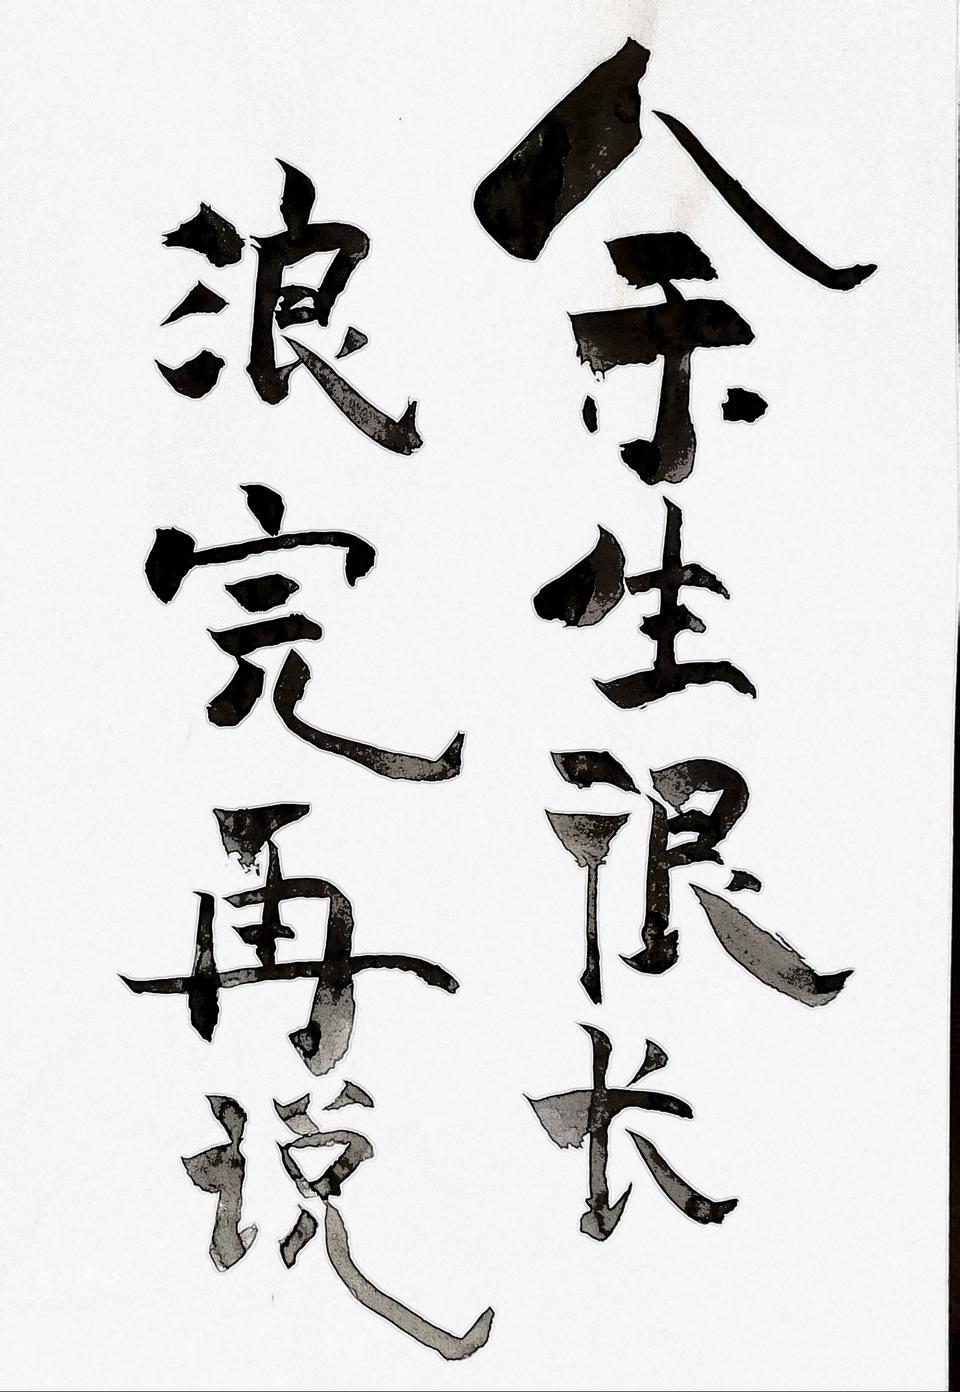 余生很长
浪完再说